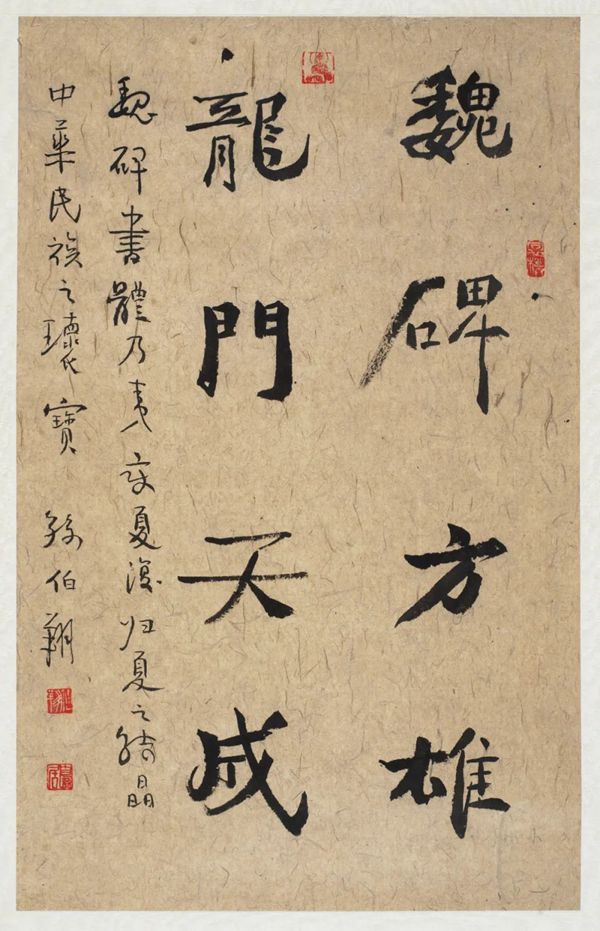 魏碑方雄
龍門天成
魏碑書體乃夷变夏復归夏之結晶
中華民族之瓌寶 孫伯翔